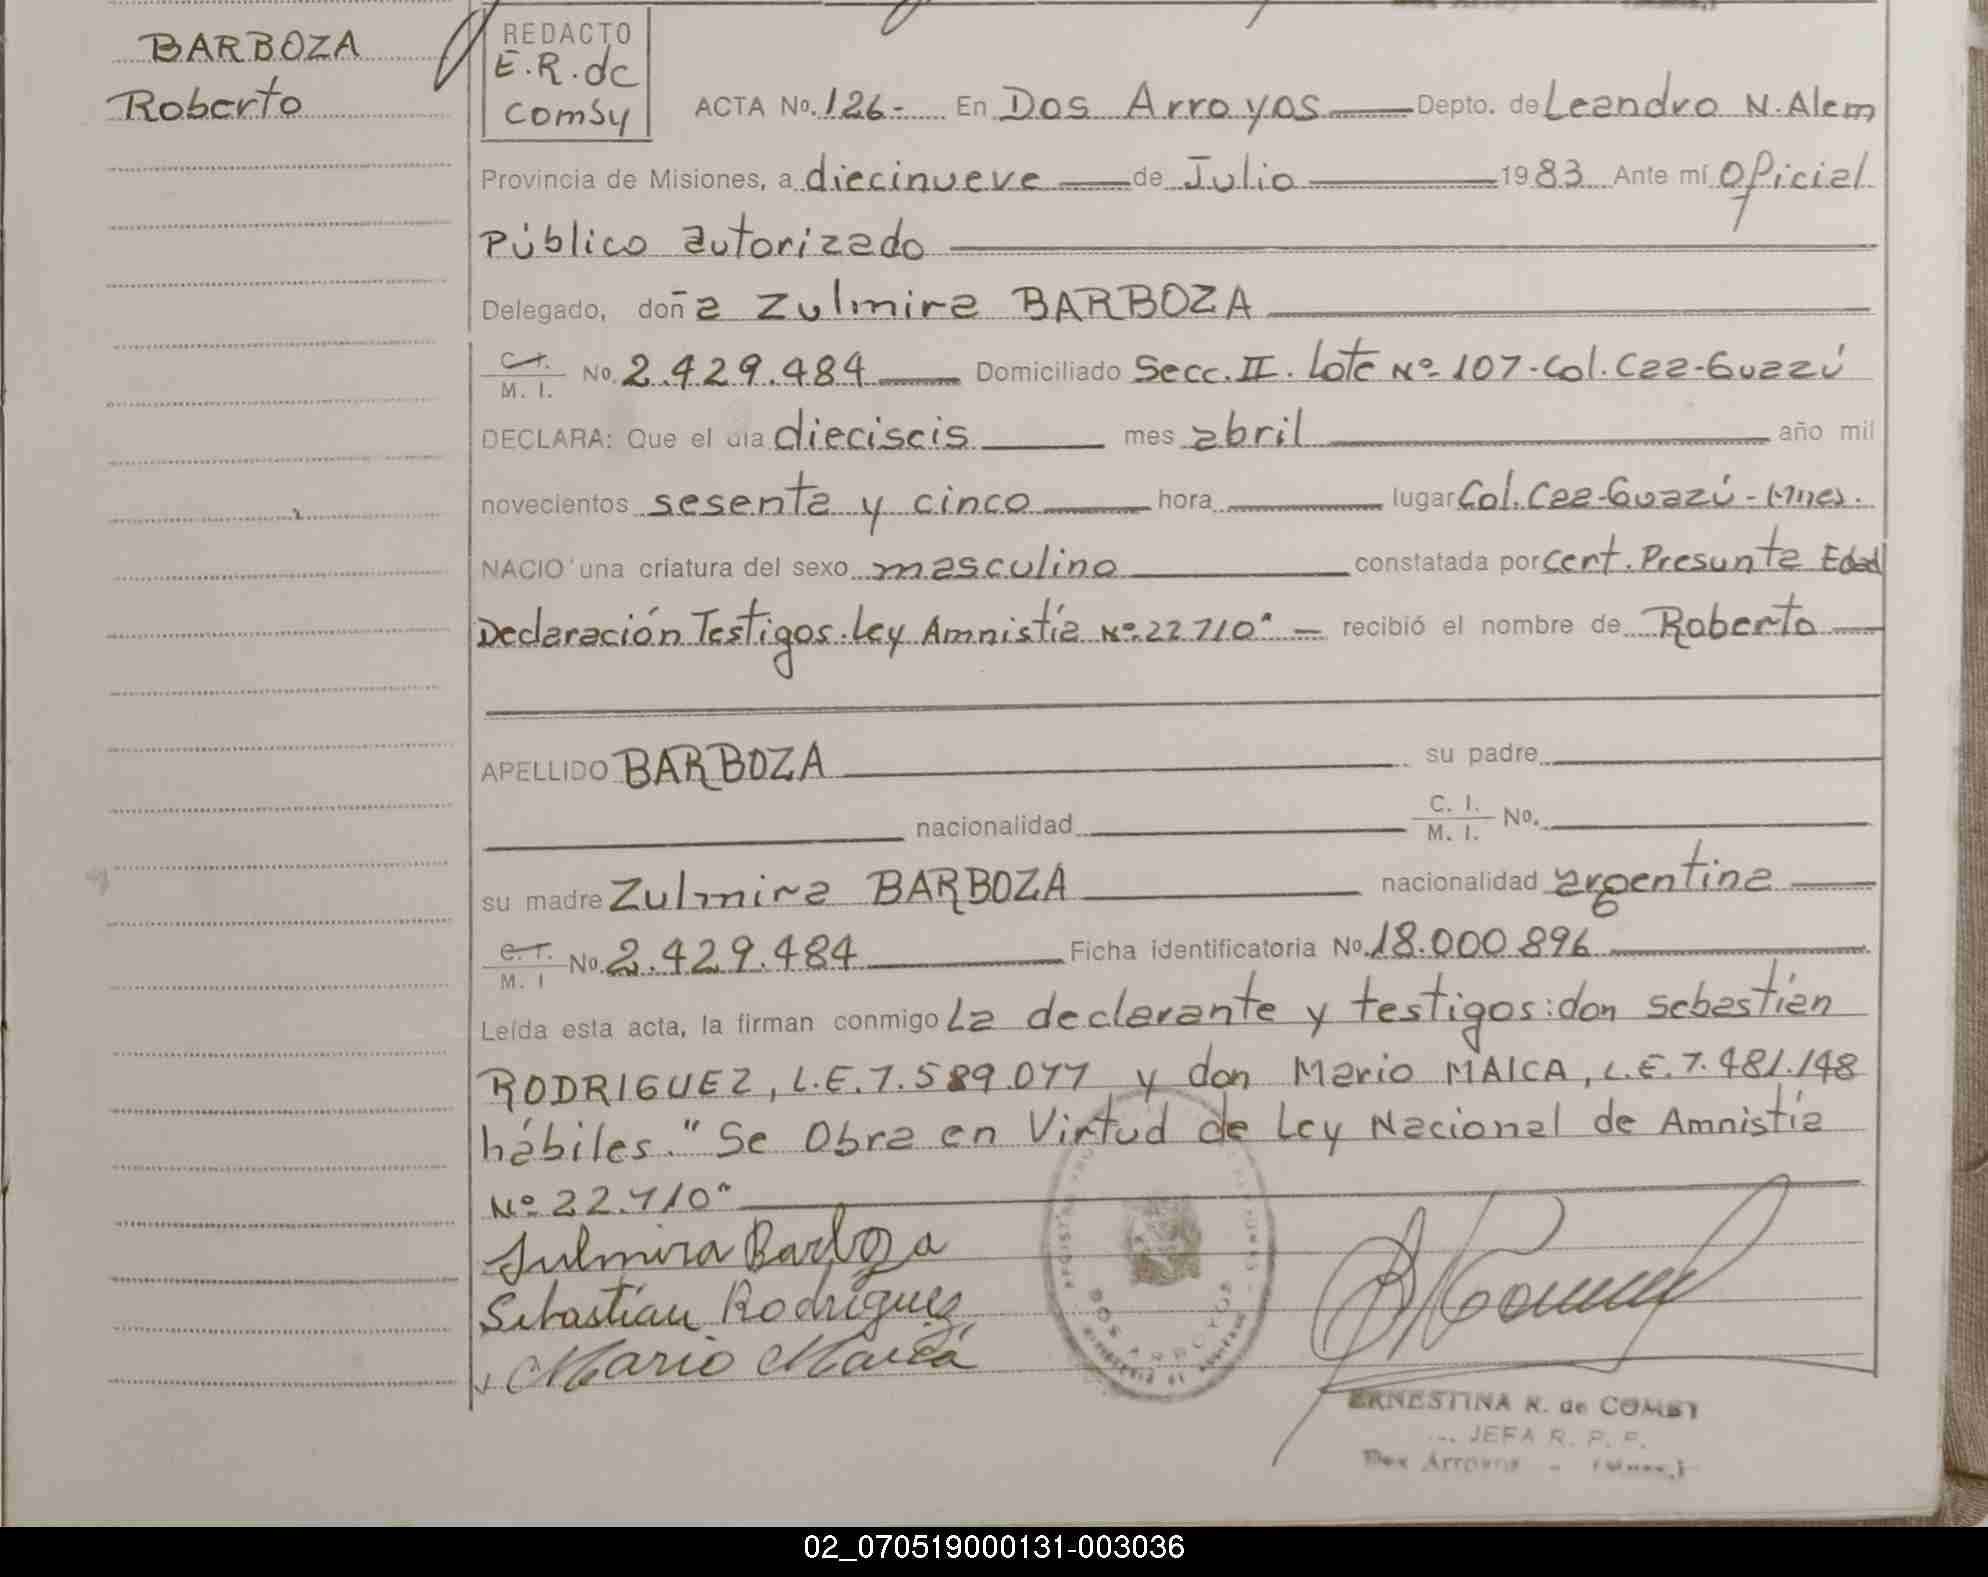 BARBOZA
Roberto
REDACTO
E.R. de
Comsy
ACTA No. 126.- En Dos Arroyos Depto. de Leandro N. Alem
Provincia de Misiones, a diecinueve de Julio 1983 Ante mí Oficial
Público autorizado
Delegado, doña Zulmira BARBOZA
C.I. M. I. No. 2.429.484 Domiciliado Secc. II. Lote Nº 107-Col. Caa-Guazú
DECLARA: Que el día dieciseis mes abril año mil
novecientos sesenta y cinco hora lugar Col. Caa-Guazú-(Mnes).
NACIO una criatura del sexo masculino constatada por Cert. Presunta Edad
Declaración Testigos. Ley Amnistía Nº 22.710" recibió el nombre de Roberto
APELLIDO BARBOZA su padre
nacionalidad C. I. M. I. No.
su madre Zulmira BARBOZA nacionalidad argentina
C.I. M. I No. 2.429.484 Ficha identificatoria No. 18.000.896
Leída esta acta, la firman conmigo La declarante y testigos: don Sebastián
RODRIGUEZ, L.E. 7.589.077 y don Mario MAICA, L.E. 7.481.148
hábiles. "Se Obra en Virtud de Ley Nacional de Amnistía
Nº 22.710"
Sulmira Barboza
Sebastian Rodriguez
Mario Maica
DOS ARROYOS
ERNESTINA R. de COMSY
JEFA R. P. P.
Dos Arroyos - (Mnes.)
02_070519000131-003036